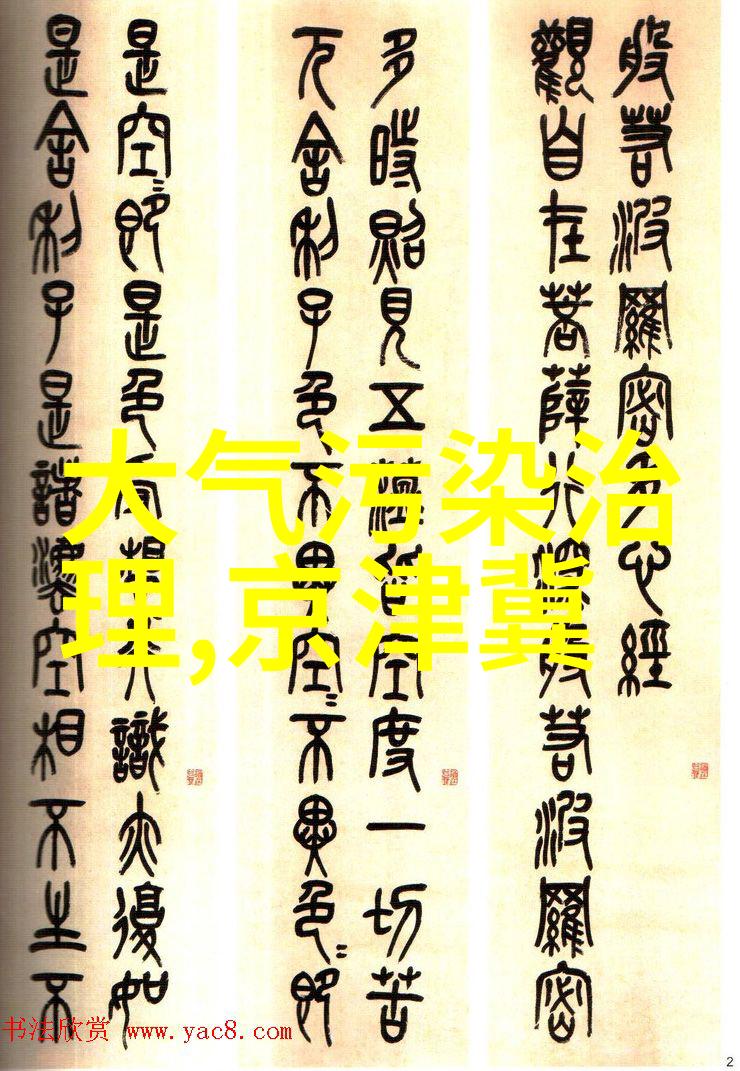 般若波羅密多心經
觀自在菩薩行深般若波羅密
多時照見五蘊皆空度一切苦
厄舍利子色不異空〻不異色〻即
是空〻即是色受想行識亦復如
是舍利子是諸灋空相不生不
大气污染治
理,京津冀
书法欣赏 www.yac8.com
2